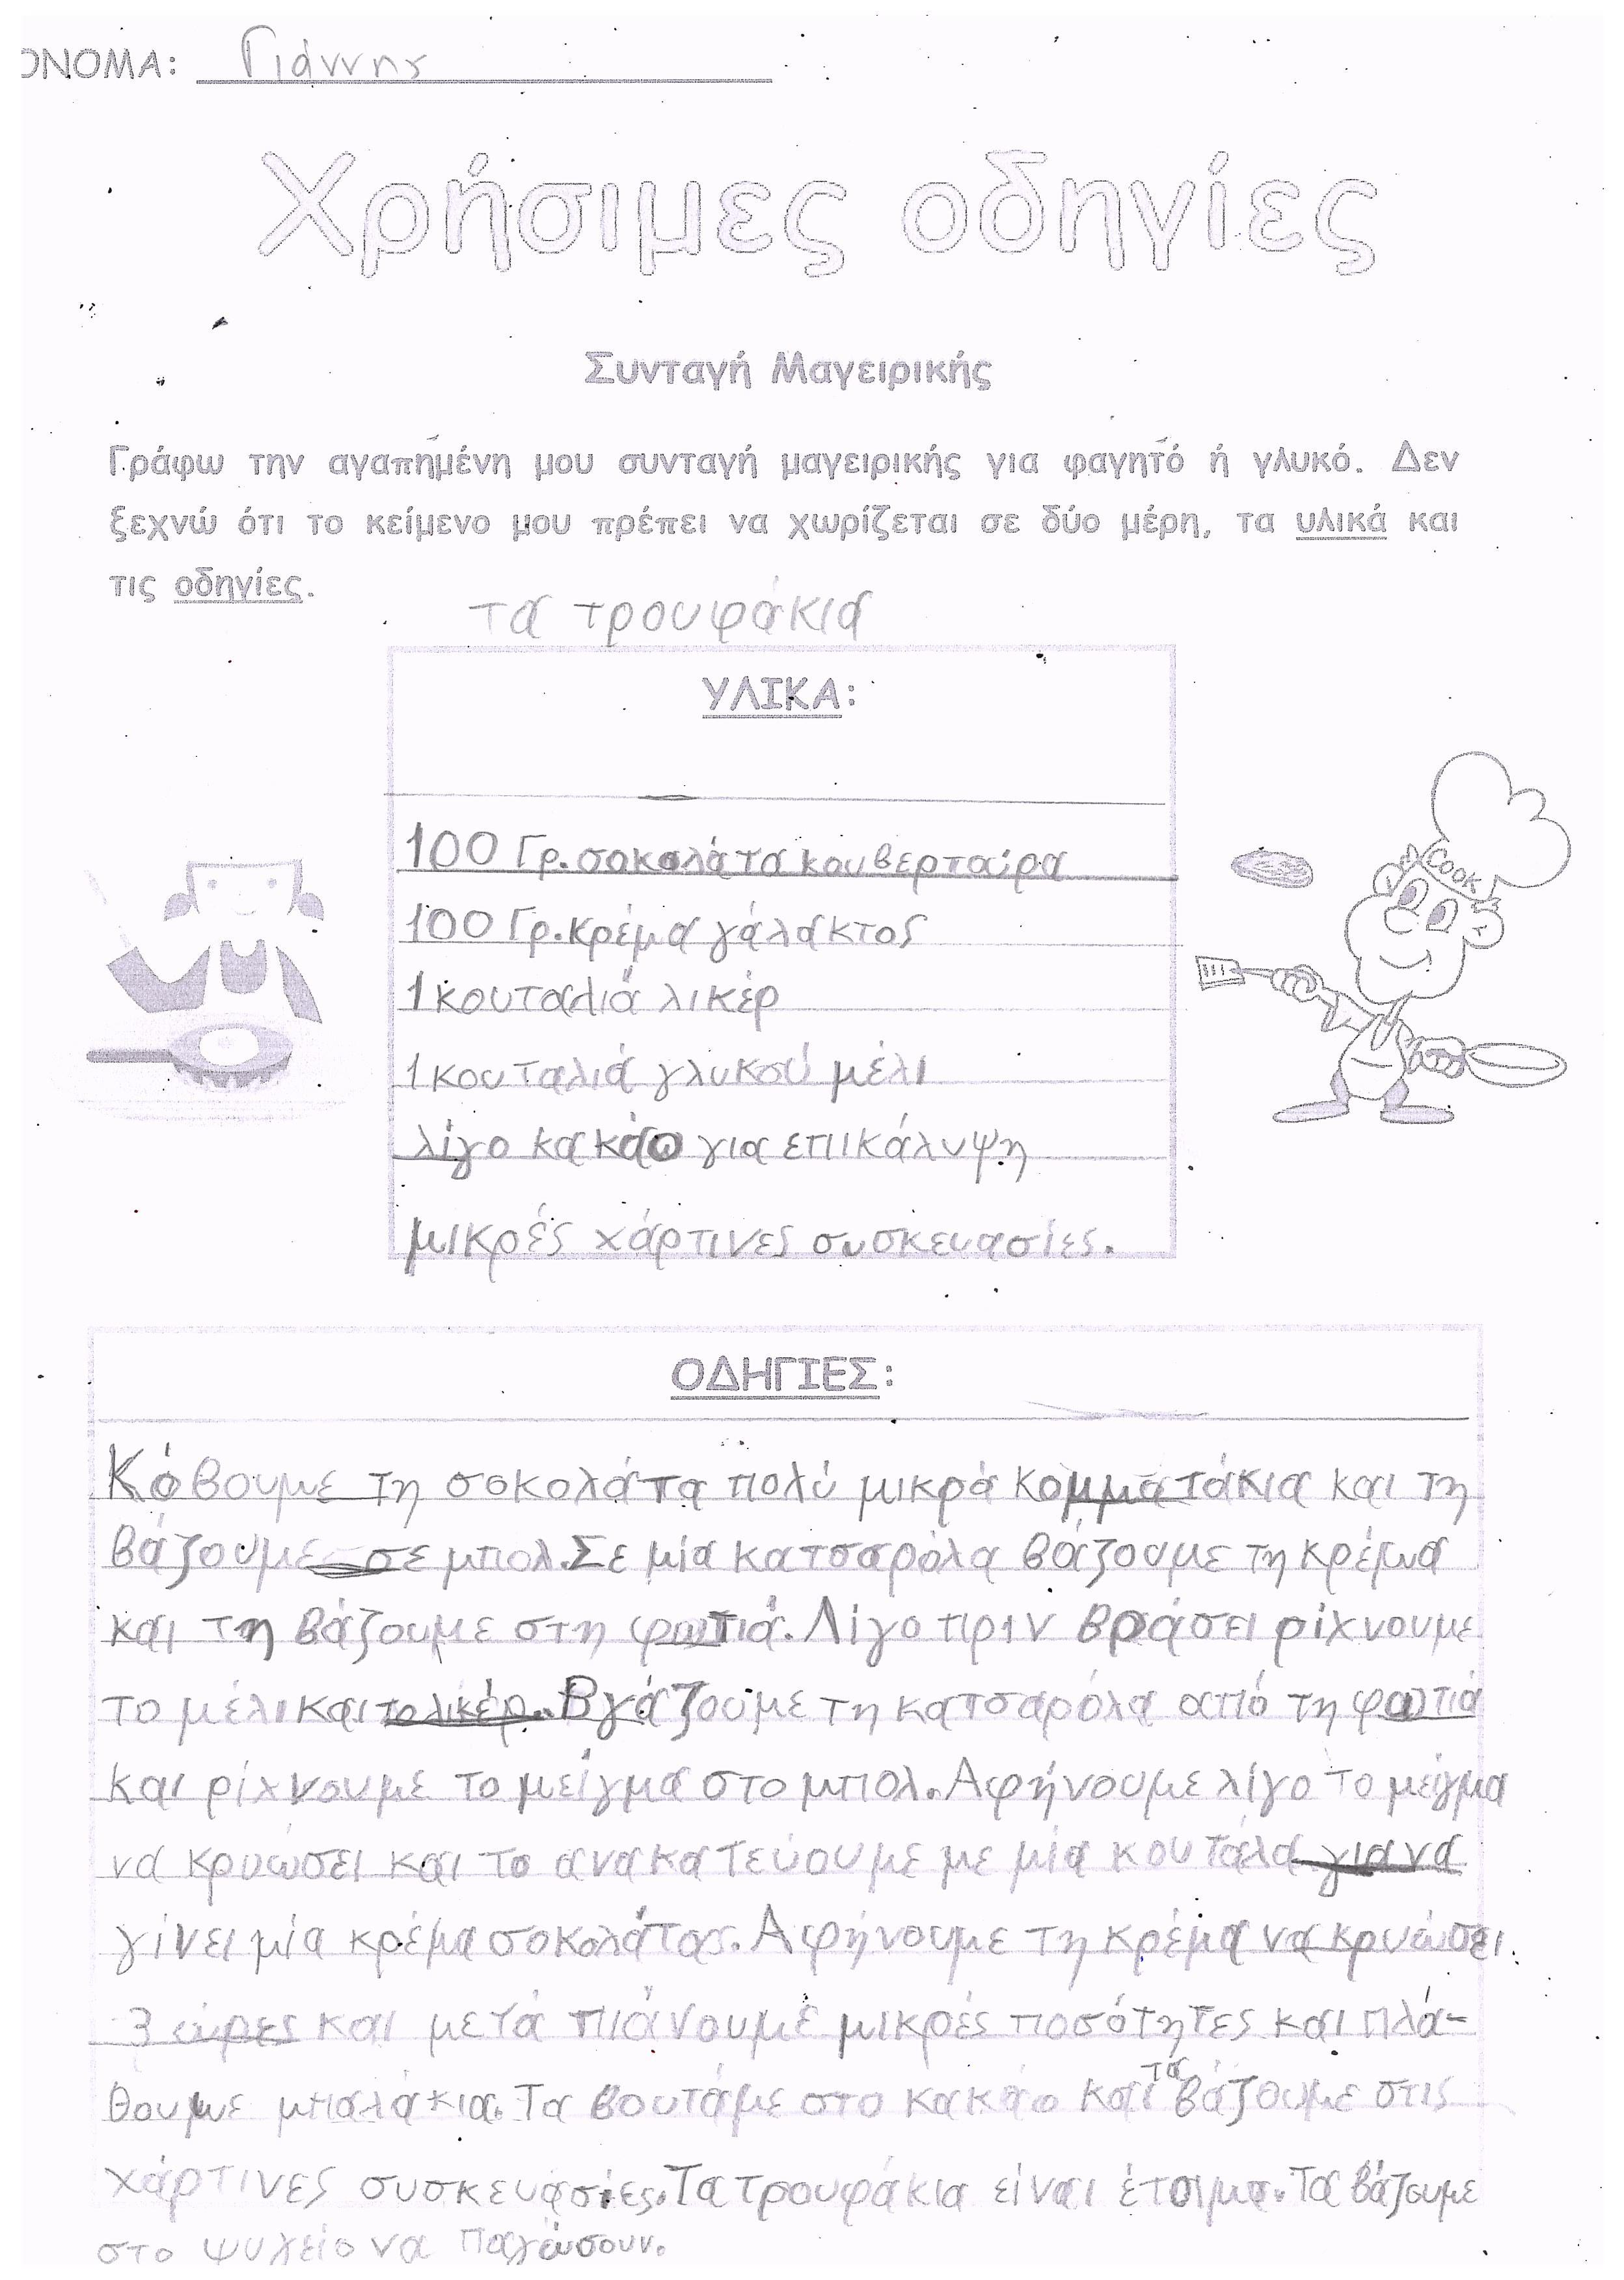 ΟΝΟΜΑ: Γιάννης
Χρήσιμες οδηγίες
Συνταγή Μαγειρικής
Γράφω την αγαπημένη μου συνταγή μαγειρικής για φαγητό ή γλυκό. Δεν
ξεχνώ ότι το κείμενο μου πρέπει να χωρίζεται σε δύο μέρη, τα υλικά και
τις οδηγίες.
τα τρουφάκια
ΥΛΙΚΑ:
100 Γρ. σοκολάτα κουβερτούρα
100 Γρ. κρέμα γάλακτος
1 κουταλιά λικέρ
1 κουταλιά γλυκού μέλι
λίγο κακάο για επικάλυψη
μικρές χάρτινες συσκευασίες.
COOK
ΟΔΗΓΙΕΣ:
Κόβουμε τη σοκολάτα πολύ μικρά κομματάκια και τη
βάζουμε σε μπολ. Σε μία κατσαρόλα βάζουμε τη κρέμα
και τη βάζουμε στη φωτιά. Λίγο πριν βράσει ρίχνουμε
το μέλι και το λικέρ. Βγάζουμε τη κατσαρόλα από τη φωτιά
και ρίχνουμε το μείγμα στο μπολ. Αφήνουμε λίγο το μείγμα
να κρυώσει και το ανακατεύουμε με μία κουτάλα για να
γίνει μία κρέμα σοκολάτας. Αφήνουμε τη κρέμα να κρυώσει
3 ώρες και μετά πιάνουμε μικρές ποσότητες και πλά-
θουμε μπαλάκια. Τα βουτάμε στο κακάο και τα βάζουμε στις
χάρτινες συσκευασίες. Τα τρουφάκια είναι έτοιμα. Τα βάζουμε
στο ψυγείο να παγώσουν.